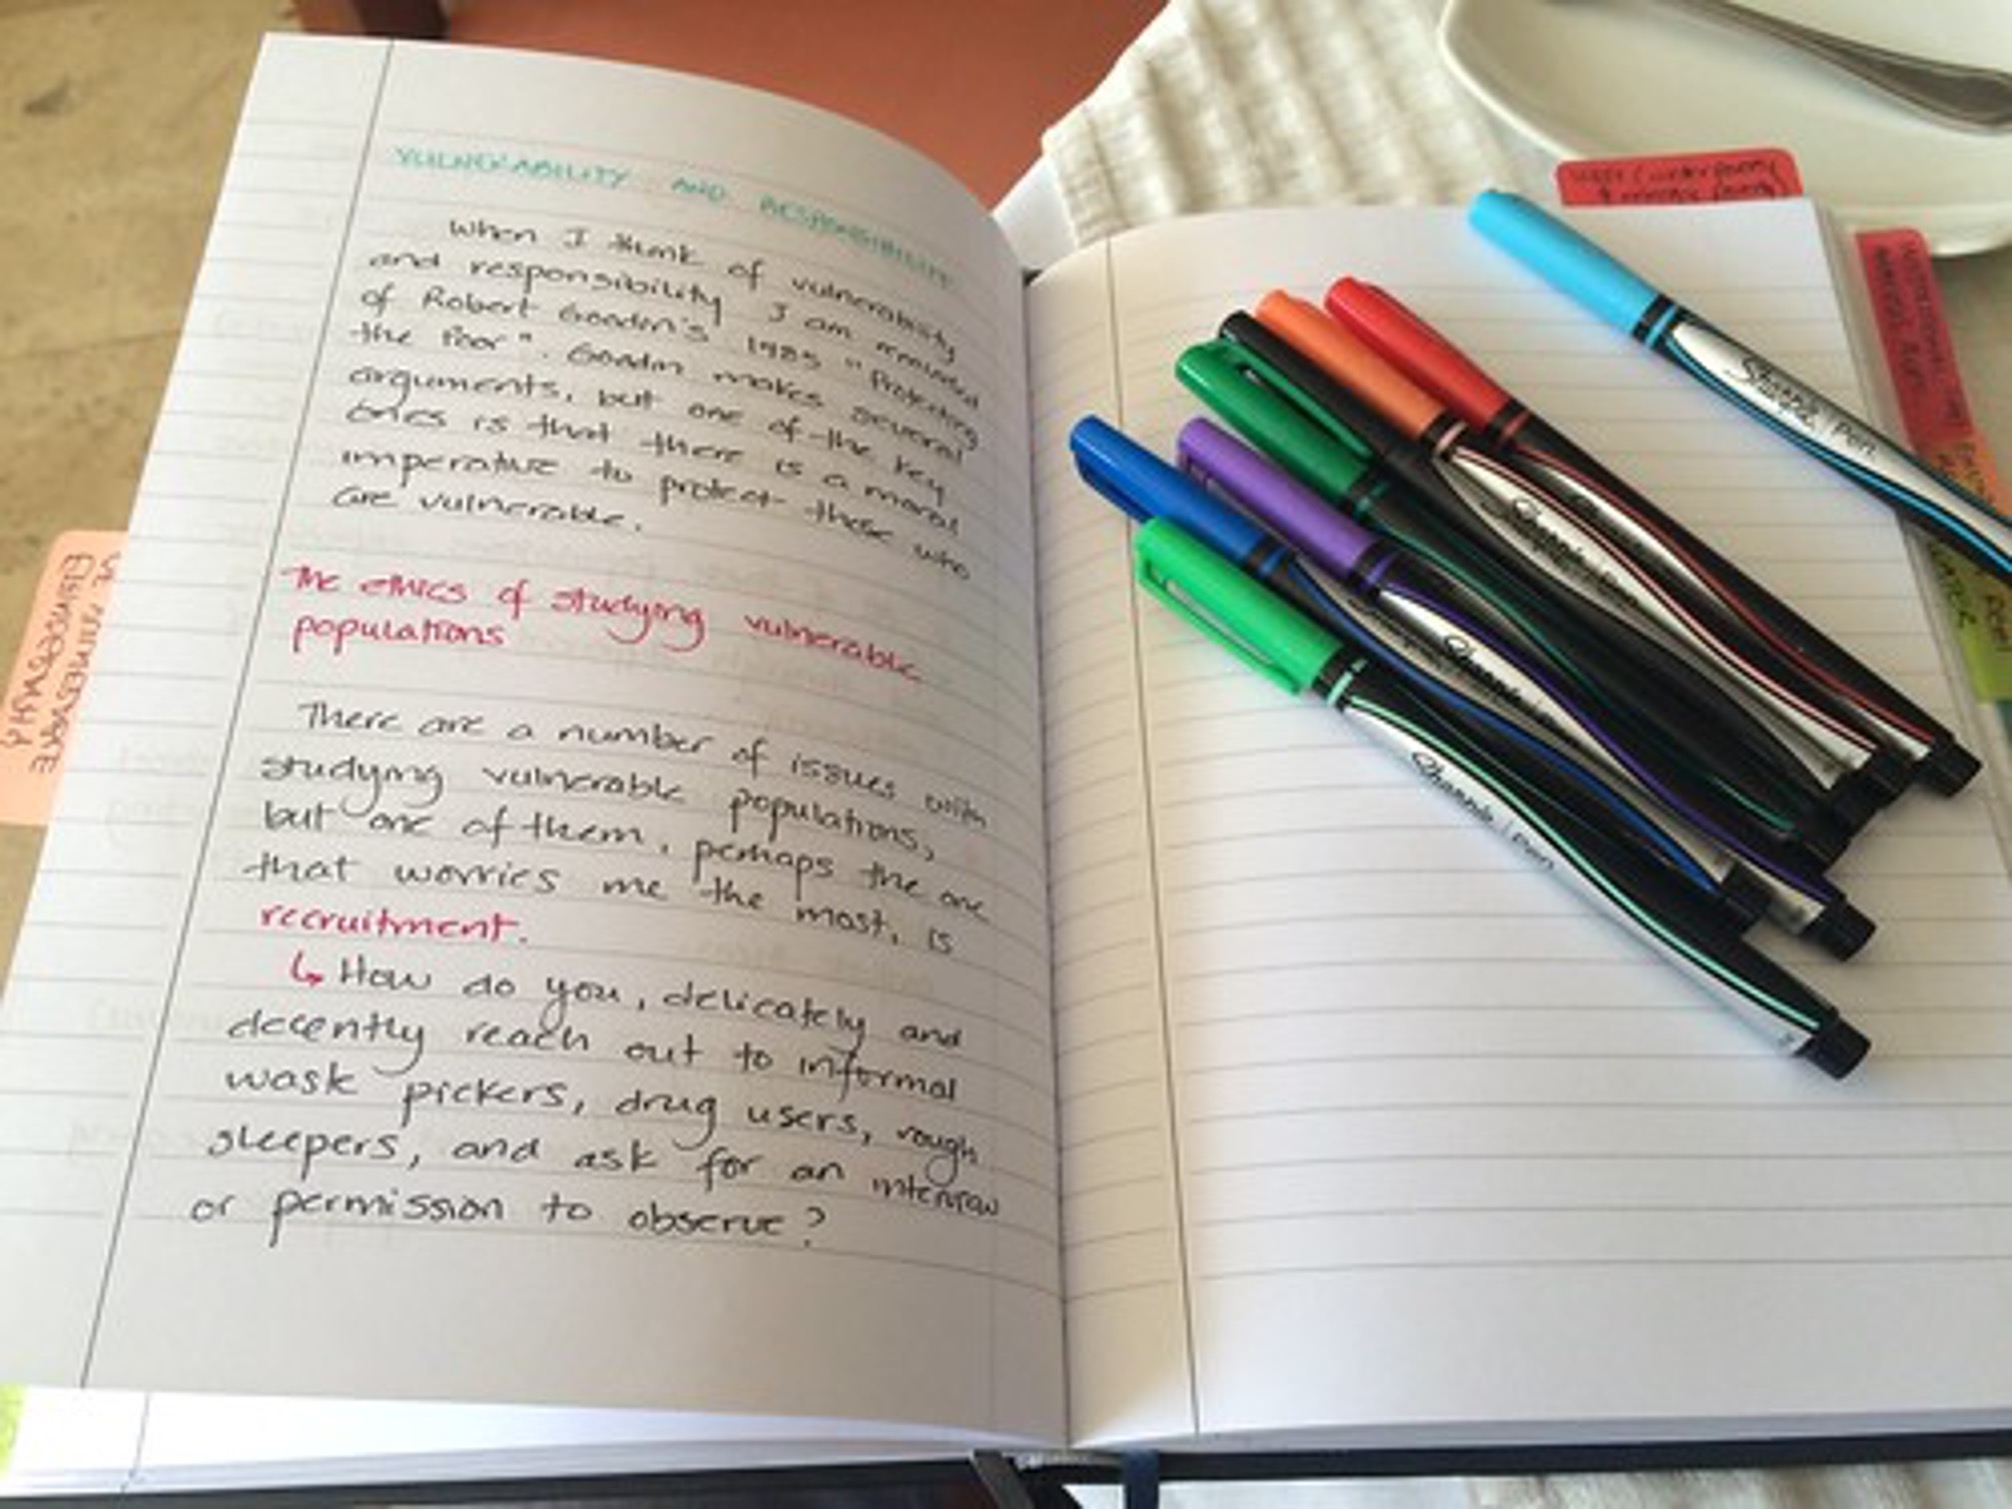 VULNERABILITY AND RESPONSIBILITY
When I think of vulnerability
and responsibility I am reminded
of Robert Goodin's 1985 "Protecting
the Poor". Goodin makes several
arguments, but one of the key
ones is that there is a moral
imperative to protect those who
are vulnerable.
The ethics of studying vulnerable
populations
There are a number of issues with
studying vulnerable populations,
but one of them, perhaps the one
that worries me the most, is
recruitment.
↳ How do you, delicately and
decently reach out to informal
waste pickers, drug users, rough
sleepers, and ask for an interview
or permission to observe?
ETHNOGRAPHY
Sharpie Pen
Sharpie Pen
Sharpie
Sharpie Pen